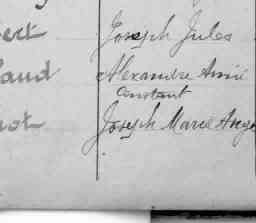 bert Joseph Jules
laud Alexandre Aimé
Constant
not Joseph Marie Ange